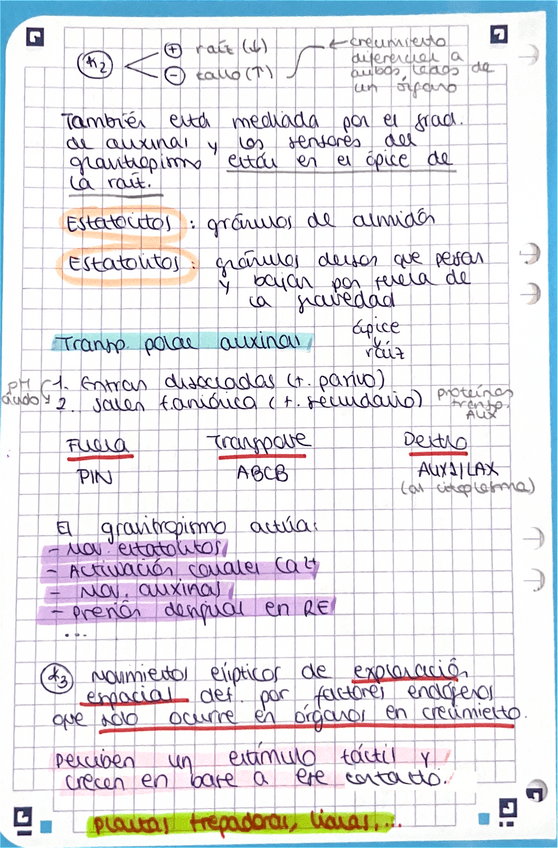 *2
⊕ raíz (↓)
⊖ tallo (↑)
← crecimiento
diferencial a
ambos lados de
un órgano
También está mediada por el grad.
de auxinas y los sensores del
gravitropismo están en el ápice de
la raíz.
Estatolitos: gránulos de almidón
Estatolitos: gránulos densos que pesan
y bajan por fuerza de
la gravedad
Transp. polar auxinas
ápice
y
raíz
pH
ácido
1. Entran disociadas (t. pasivo)
2. Salen f.aniónica (t. secundario)
proteínas
transp.
AUX
Fuera Transporte Dentro
PIN ABCB AUX1/LAX
(al citoplasma)
El gravitropismo actúa:
- Mov. estatolitos
- Activación canales Ca2+
- Mov. auxinas
- Presión desigual en RE
...
*3 Movimientos elípticos de exploración
espacial det. por factores endógenos
que solo ocurre en órganos en crecimiento.
Perciben un estímulo táctil y
crecen en base a ese contacto.
Plantas trepadoras, lianas,...